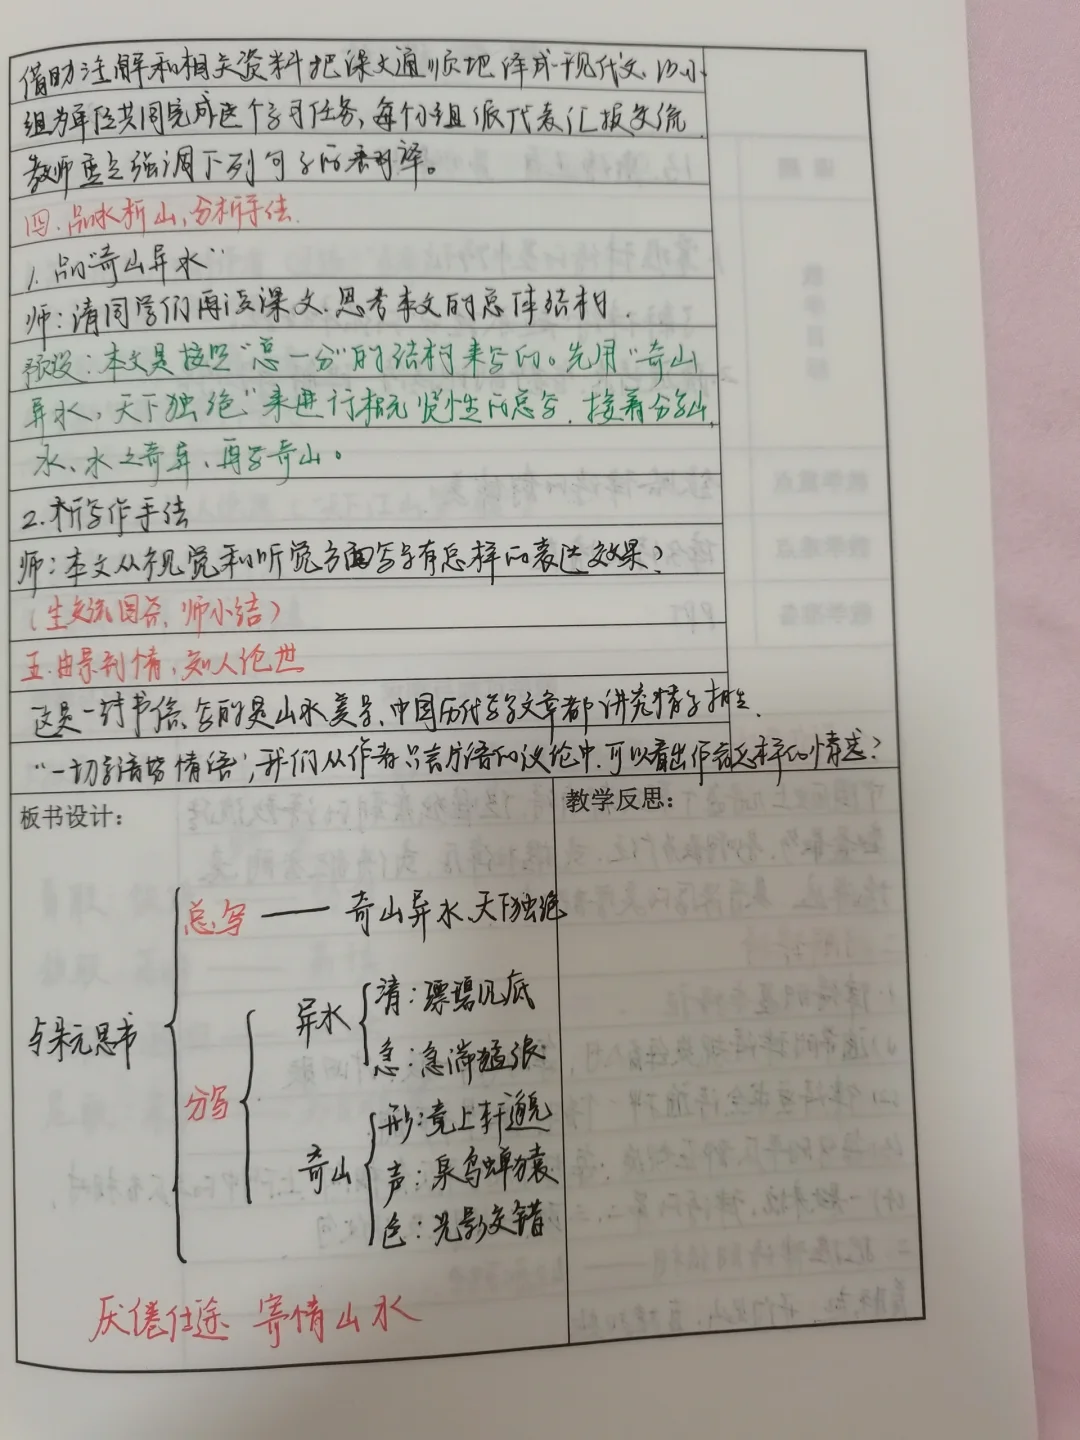 借助注解和相关资料把课文通顺地译成现代文,以小
组为单位共同完成这个学习任务,每个小组派代表汇报交流
教师重点强调下列句子的翻译。
四.品水析山,分析手法.
1.品“奇山异水”
师:请同学们再读课文.思考本文的总体结构.
预设:本文是按照“总一分”的结构来写的。先用“奇山
异水,天下独绝”来进行概览性的总写.接着分写山、
水、水之奇异、再写奇山。
2.析写作手法
师:本文从视觉和听觉方面写景有怎样的表达效果?
(生交流回答,师小结)
五.由景到情,知人论世
这是一封书信.写的是山水美景.中国历代写文章都讲究情景相生.
“一切景语皆情语”,我们从作者只言片语的议论中,可以看出作者怎样的情感?
板书设计:
教学反思:
总写 —— 奇山异水、天下独绝
与朱元思书
分写
异水
清:漂碧见底
急:急湍猛浪
奇山
形:竞上轩邈
声:泉鸟蝉猿
色:光影交错
厌倦仕途 寄情山水